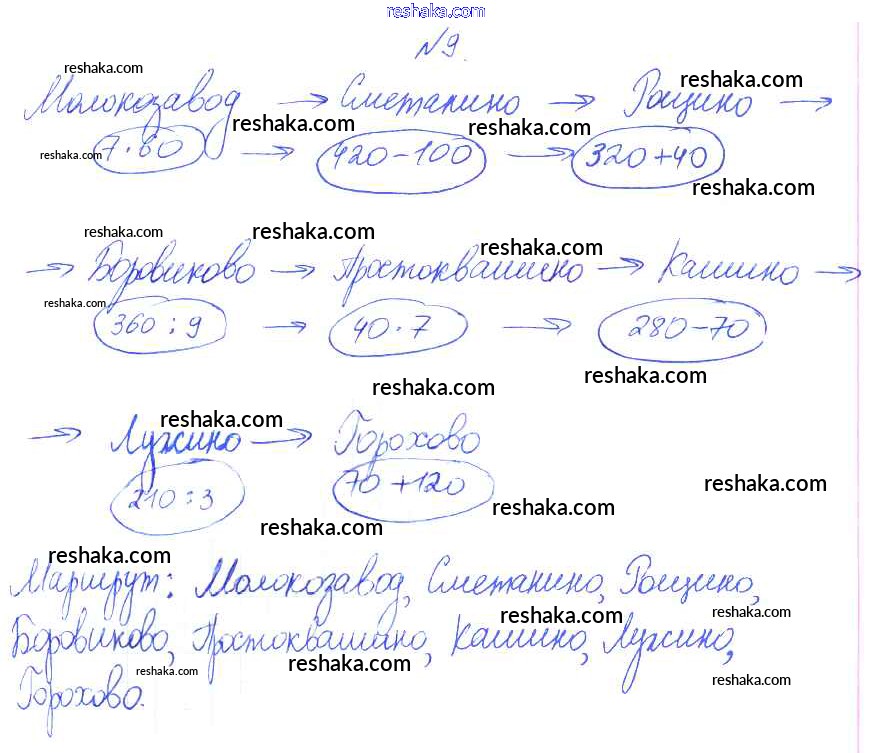 reshaka.com
№9.
reshaka.com reshaka.com
Молокозавод → Сметанино → Рощино →
reshaka.com reshaka.com
reshaka.com 7·60 → 420-100 → 320+40
reshaka.com
reshaka.com reshaka.com reshaka.com
→ Боровиково → Простоквашино → Кашино →
reshaka.com
360:9 → 40·7 → 280-70
reshaka.com reshaka.com
reshaka.com
→ Лужино → Горохово
210:3 70+120 reshaka.com
reshaka.com
reshaka.com
reshaka.com
Маршрут: Молокозавод, Сметанино, Рощино,
reshaka.com reshaka.com
Боровиково, Простоквашино, Кашино, Лужино,
reshaka.com reshaka.com reshaka.com
Горохово.